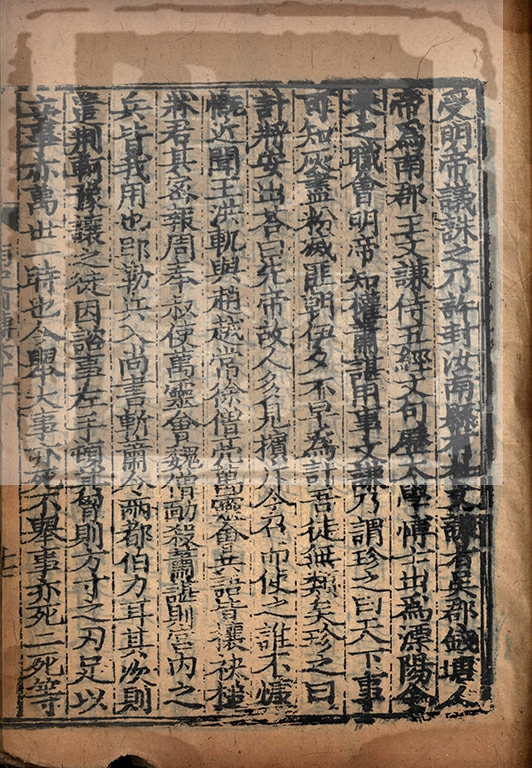 受明帝議誅之乃許封汝南縣有杜文謙者吳郡錢塘人
帝為南郡王文謙侍五經文句歷太學博士出為溧陽令
之職會明帝知權蕭諶用事文謙乃謂珍之曰天下事
可知灰盡粉滅匪朝伊夕不早為計吾徒無類矣珍之曰
計將安出荅曰先帝故人多見擯斥今召而使之誰不慷
慨近聞王洪軌與趙越常徐僧亮萬靈會共語皆攘袂搥
牀君其密報周奉叔使萬靈會魏僧勔殺蕭諶則宮內之
兵皆我用也即勒兵入尚書斬蕭令兩都伯力耳其次則
遣荊軻豫讓之徒因諮事左手頓其𦚾則方寸之刃足以
立事亦萬世一時也今舉大事亦死不舉事亦死二死等